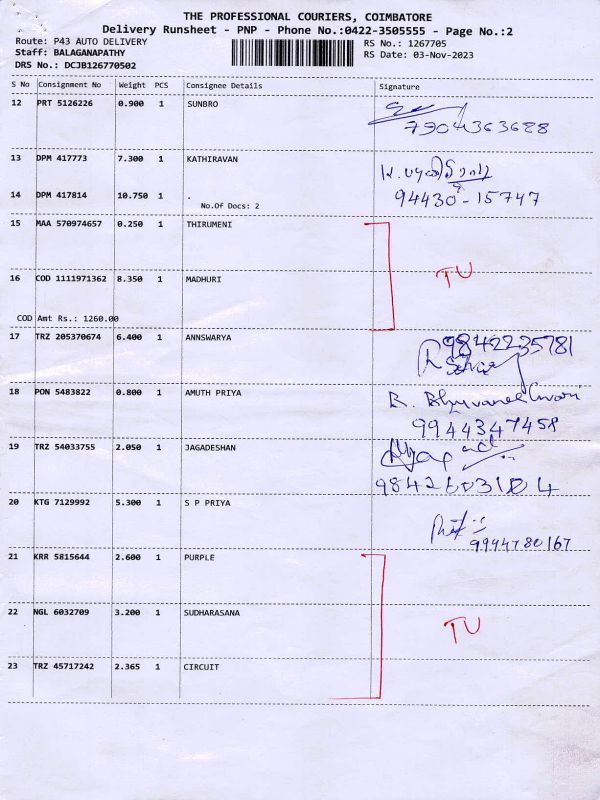 THE PROFESSIONAL COURIERS, COIMBATORE
Delivery Runsheet - PNP - Phone No.:0422-3505555 - Page No.:2
Route: P43 AUTO DELIVERY RS No.: 1267705
Staff: BALAGANAPATHY RS Date: 03-Nov-2023
DRS No.: DCJB126770502
S No Consignment No Weight PCS Consignee Details Signature
12 PRT 5126226 0.900 1 SUNBRO
7904363688
13 DPM 417773 7.300 1 KATHIRAVAN
14 DPM 417814 10.750 1 . 94430-15747
No.Of Docs: 2
15 MAA 570974657 0.250 1 THIRUMENI
TU
16 COD 1111971362 8.350 1 MADHURI
COD Amt Rs.: 1260.00
17 TRZ 205370674 6.400 1 ANNSWARYA 9842235781
18 PON 5483822 0.800 1 AMUTH PRIYA R. Bhuvaneshwari
9944347458
19 TRZ 54033755 2.050 1 JAGADESHAN
9842603184
20 KTG 7129992 5.300 1 S P PRIYA
9994780167
21 KRR 5815644 2.600 1 PURPLE
22 NGL 6032709 3.200 1 SUDHARASANA
TU
23 TRZ 45717242 2.365 1 CIRCUIT